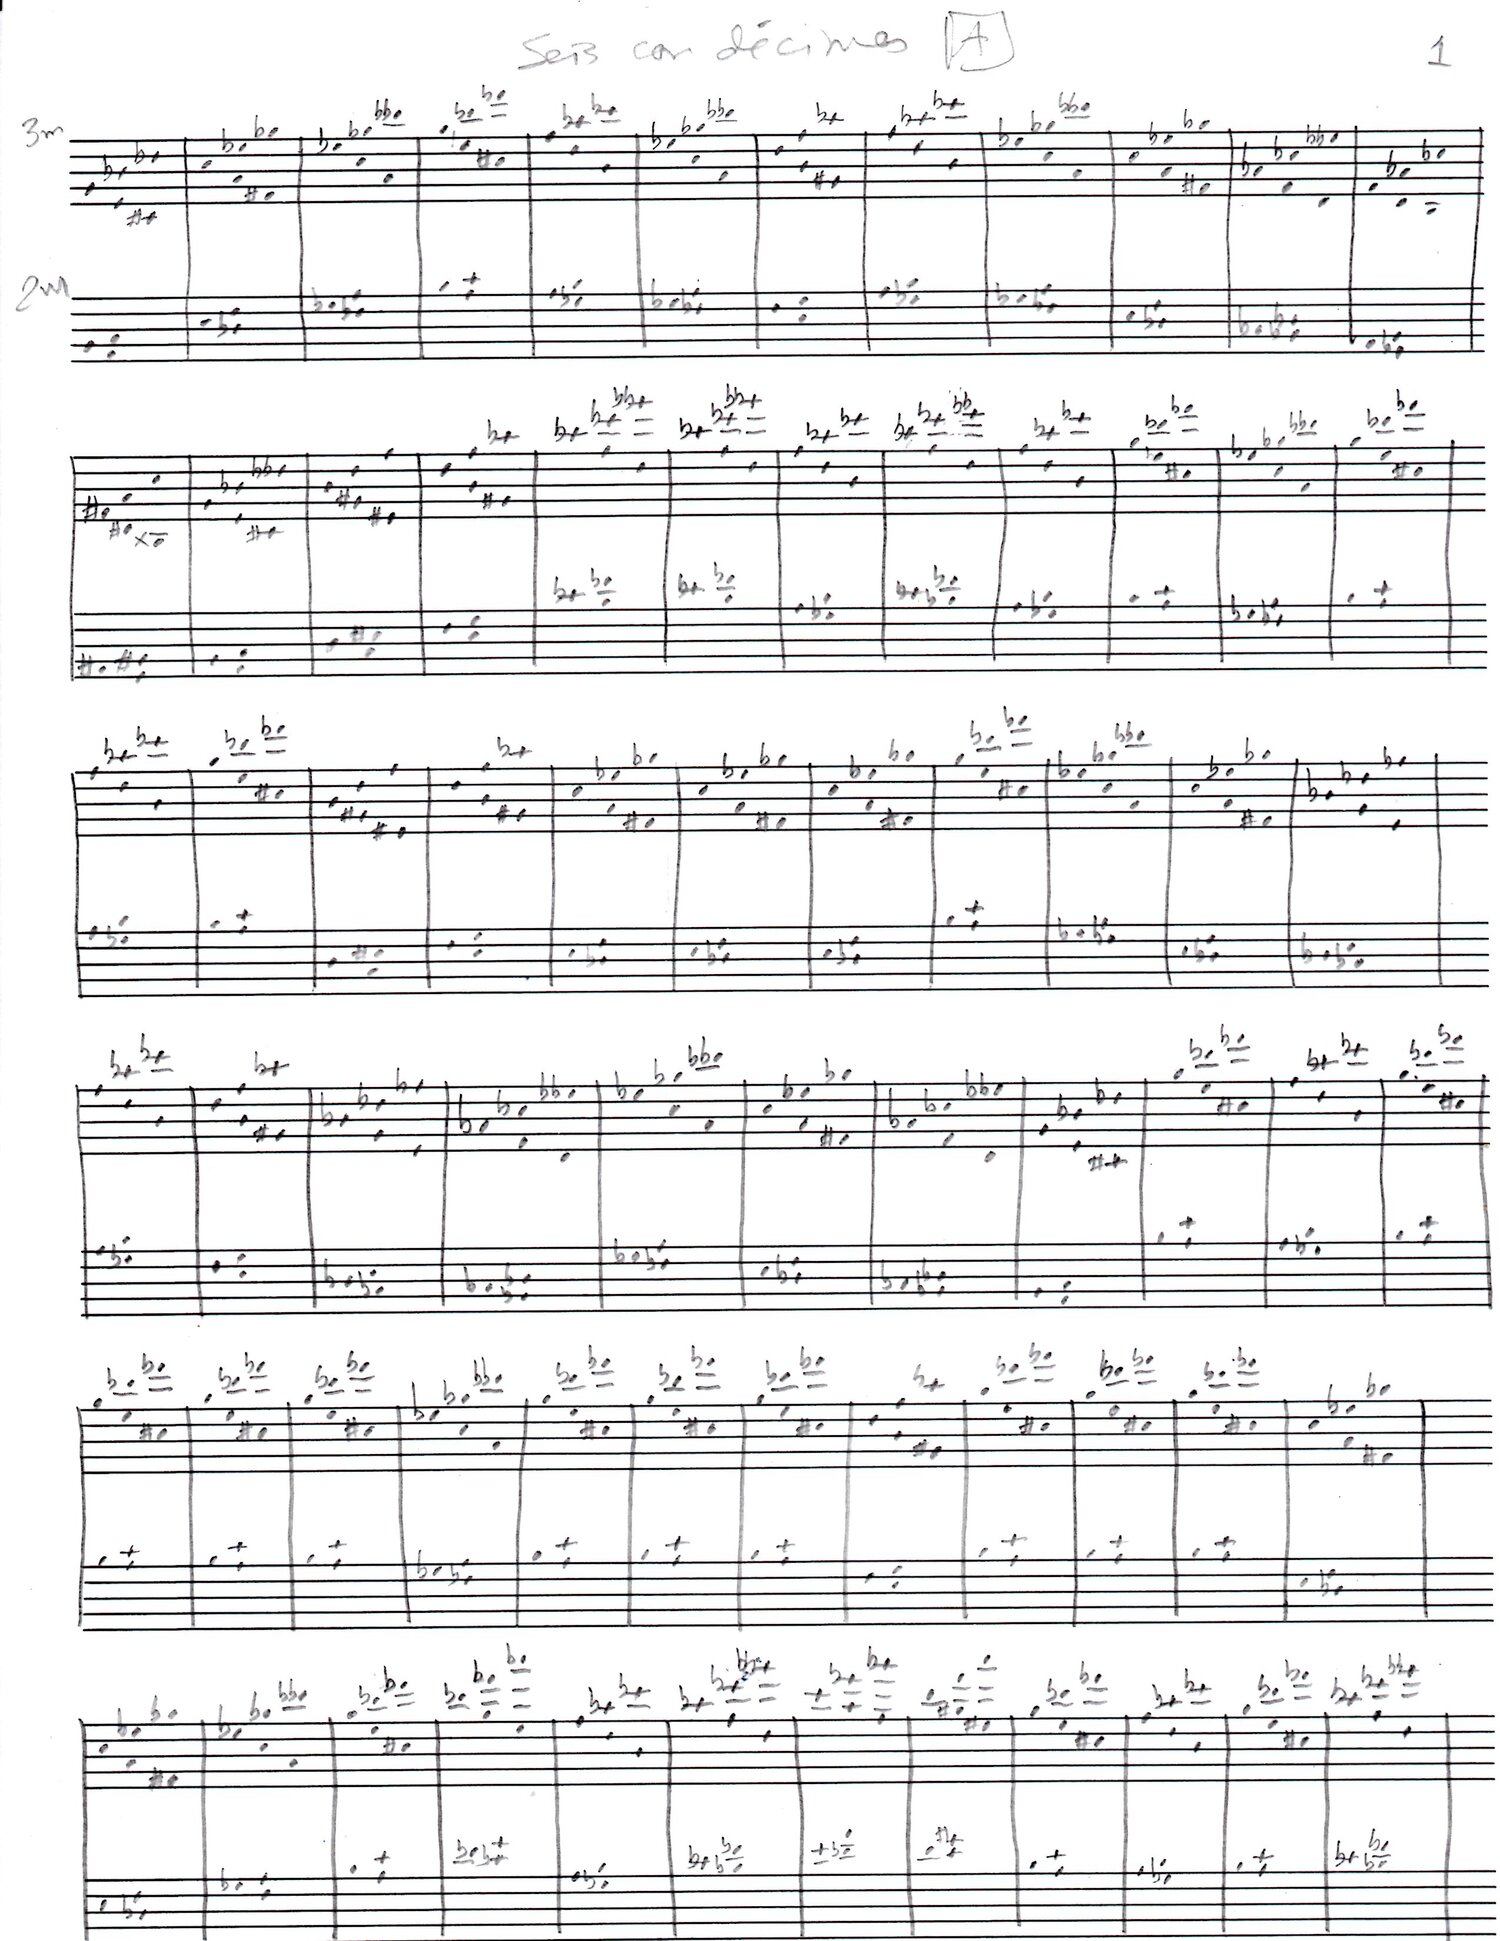 Seis con décimas A
1
3m
2m